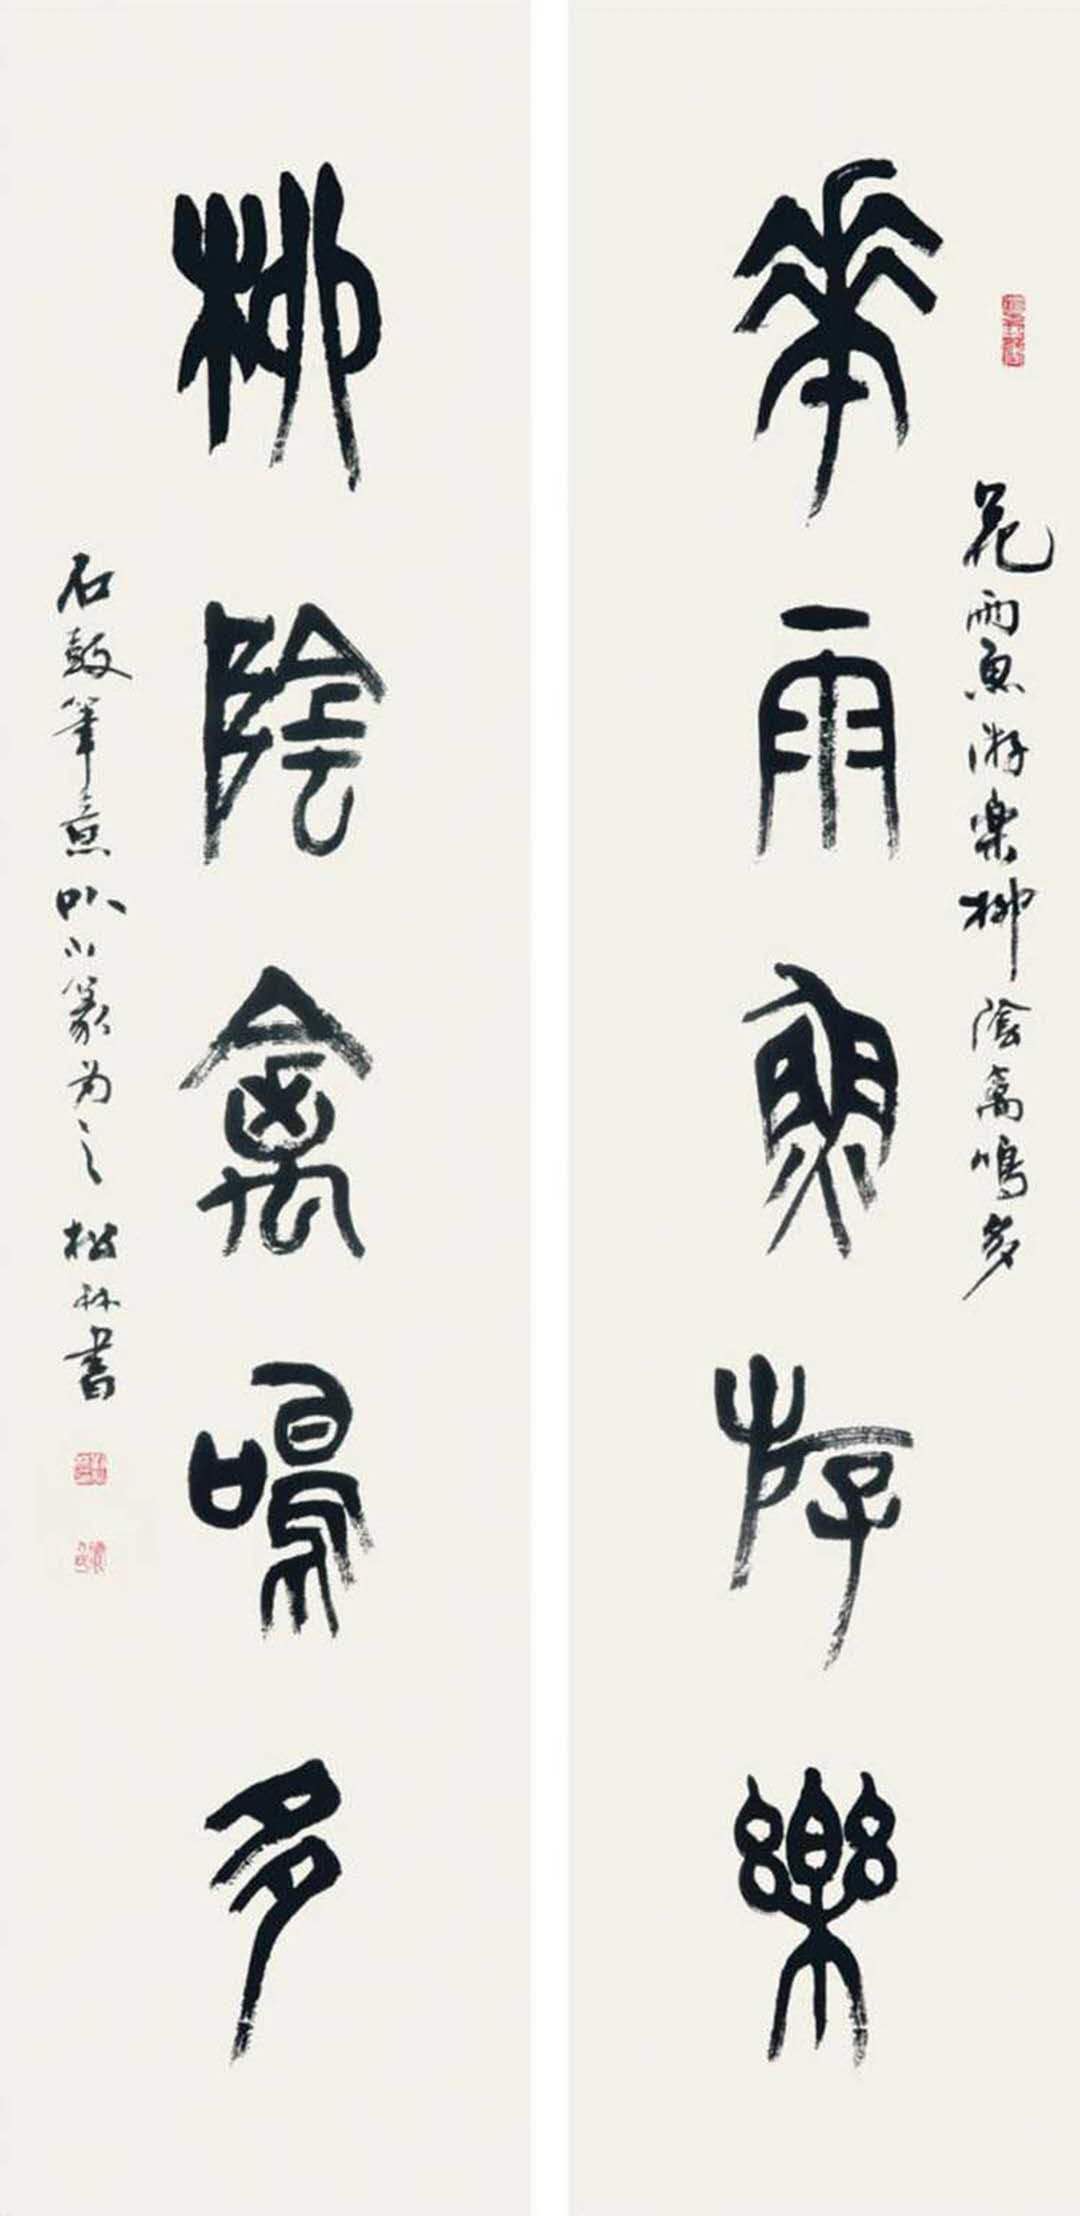 花雨魚游樂柳陰禽鳴多
華雨魚游樂
柳陰禽鳴多
石鼓筆意以小篆为之 松林書